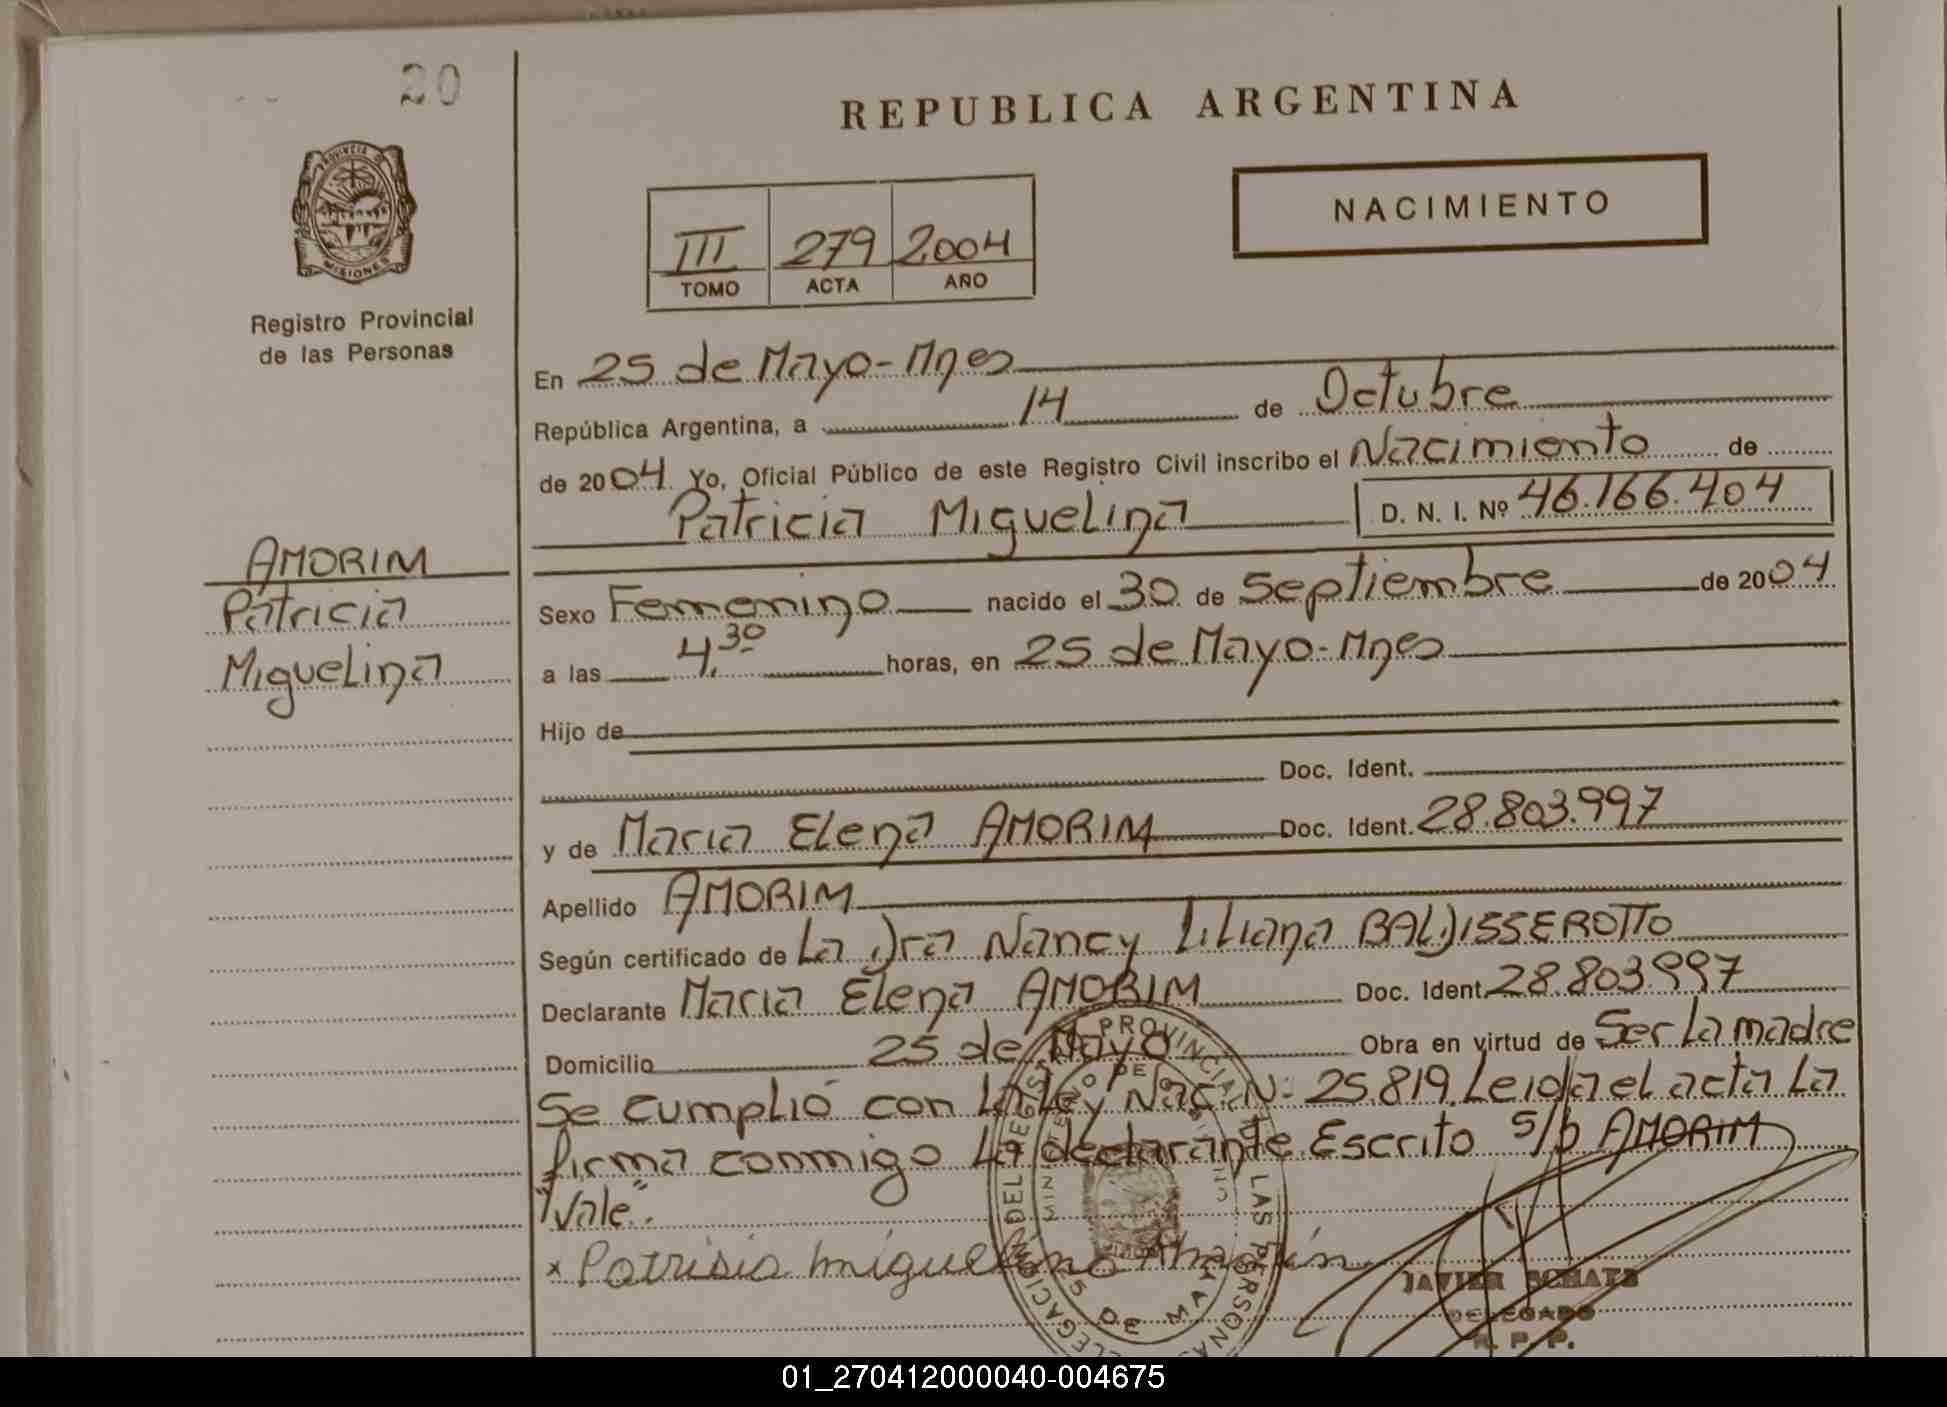 20
REPUBLICA ARGENTINA
NACIMIENTO
PROVINCIA DE
MISIONES
III 279 2004
TOMO ACTA AÑO
Registro Provincial
de las Personas
En 25 de Mayo-Mnes
República Argentina, a 14 de Octubre
de 2004 Yo, Oficial Público de este Registro Civil inscribo el Nacimiento de
Patricia Miguelina D. N. I. Nº 46.166.404
AMORIM
Patricia
Miguelina
Sexo Femenino nacido el 30 de Septiembre de 2004
a las 4.30 horas, en 25 de Mayo-Mnes
Hijo de
Doc. Ident.
y de Maria Elena AMORIM Doc. Ident. 28.803.997
Apellido AMORIM
Según certificado de La Dra Nancy Liliana BALDISSEROTTO
Declarante Maria Elena AMORIM Doc. Ident. 28.803.997
Domicilio 25 de Mayo Obra en virtud de Ser La madre
Se cumplió con La Ley Nac. N: 25.819. Leida el acta La
firma conmigo La declarante. Escrito s/b AMORIM
"Vale".
x Patrisia miguelina
JAVIER SCHATZ
DELEGADO
R. P. P.
25 DE MAYO
01_270412000040-004675